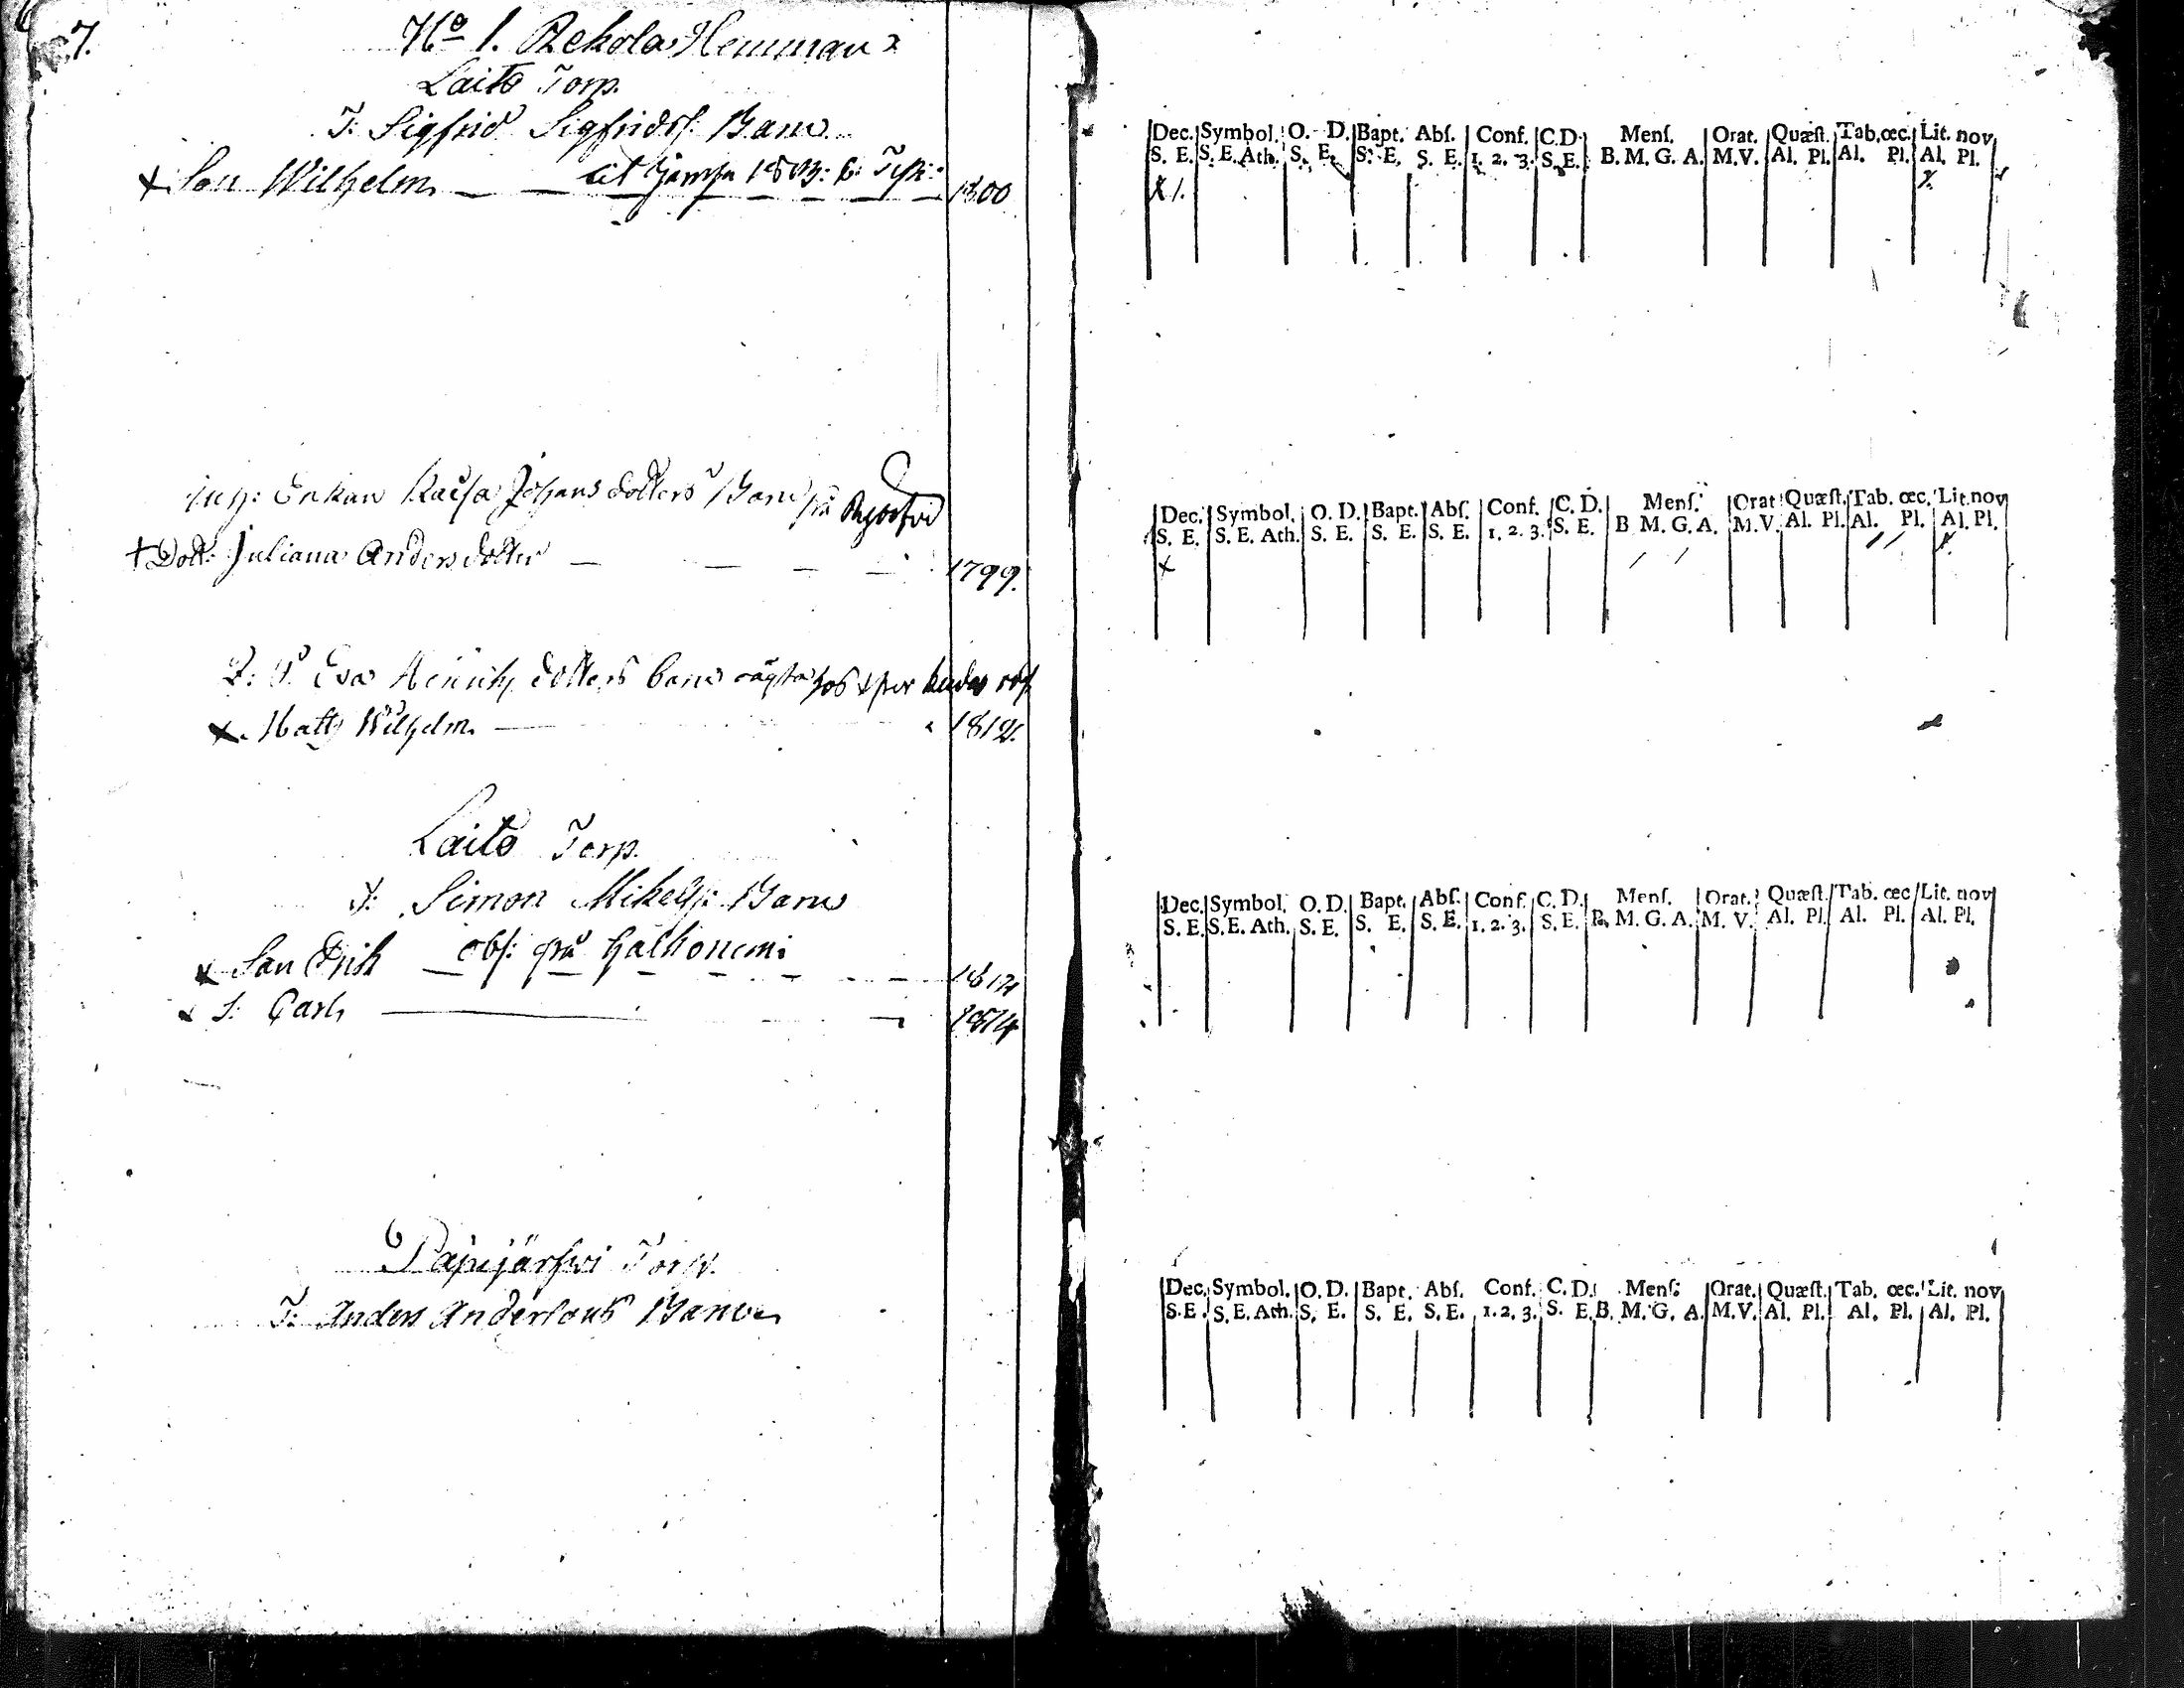 7.
No 1. Rekola Hemman
Laito Torp.
T: Sigfrid Sigfridss: Barn
Son Wilhelm 1800
Enkan Kaisa Johans dotters Barn på
+ Dott: Juliana Anders dotter 1799.
Eva Henrichs dotters barn hos
Matts Wilhelm 1812.
Laito Torp.
T: Simon Mikelss: Barn
Son Erik obs: på
S: Carl 1814
Päpijärfwi Torp.
T: Anders Andersons Barn
Dec. Symbol. O. D. Bapt. Abſ. Conf. C.D. Menſ. Orat. Quæſt. Tab. œc. Lit. nov
S. E. S. E. Ath. S. E. S. E. S. E. 1. 2. 3. S. E. B. M. G. A. M.V. Al. Pl. Al. Pl. Al. Pl.
Dec. Symbol. O. D. Bapt. Abſ. Conf. C. D. Menſ. Orat Quæſt. Tab. œc. Lit. nov
S. E. S. E. Ath. S. E. S. E. S. E. 1. 2. 3. S. E. B M. G. A. M.V. Al. Pl. Al. Pl. Al. Pl.
Dec. Symbol. O. D. Bapt. Abſ. Conf. C. D. Menſ. Orat. Quæſt. Tab. œc. Lit. nov
S. E. S. E. Ath. S. E. S. E. S. E. 1. 2. 3. S. E. B. M. G. A. M. V. Al. Pl. Al. Pl. Al. Pl.
Dec. Symbol. O. D. Bapt. Abſ. Conf. C. D. Menſ: Orat. Quæſt. Tab. œc. Lit. nov
S. E. S. E. Ath. S. E. S. E. S. E. 1. 2. 3. S. E. B. M. G. A. M.V. Al. Pl. Al. Pl. Al. Pl.